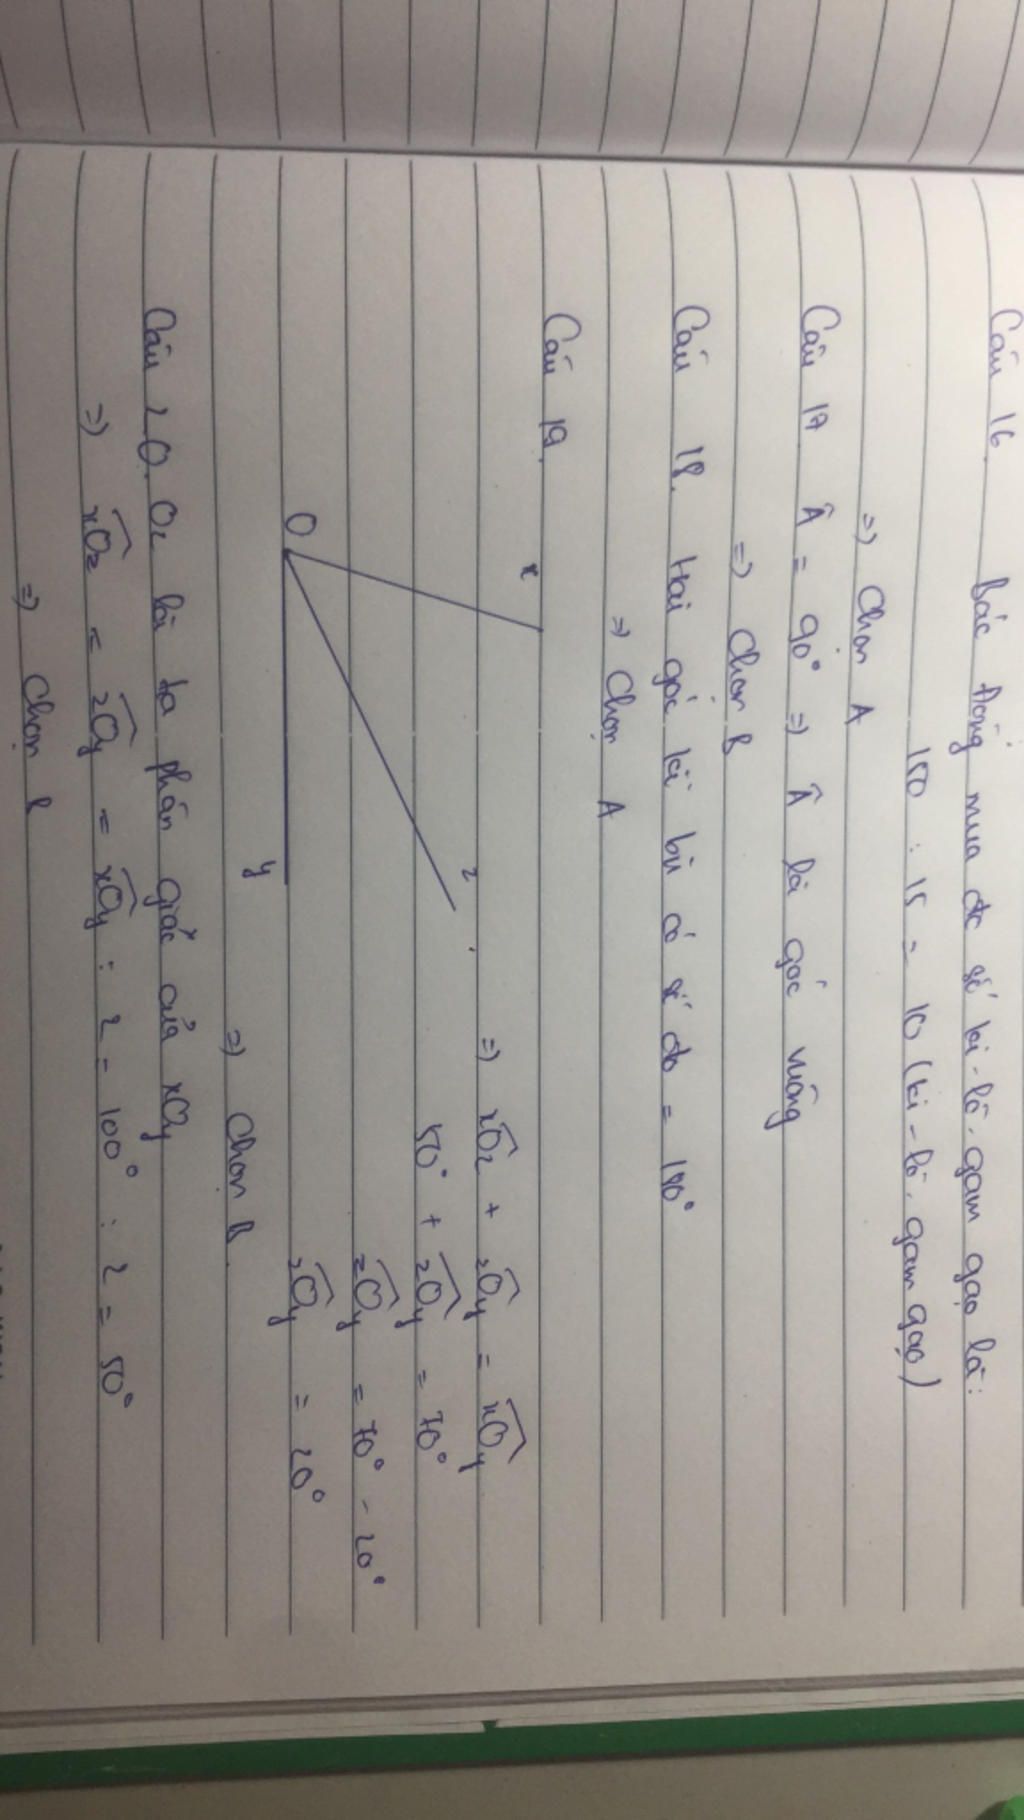 Câu 16. Bác Hồng mua đc số ki-lô-gam gạo là:
150 : 15 = 10 (ki-lô-gam gạo)
=) Chọn A
Câu 17 Â = 90° =) Â là góc vuông
=) Chọn B
Câu 18. Hai góc kề bù có số đo = 180°
=) Chọn A
Câu 19.
x
z
O
y
=) xOz + zOy = xOy
50° + zOy = 70°
zOy = 70° - 20°
zOy = 20°
=) Chọn B
Câu 20. Oz là ta phân giác của xOy
=) xOz = zOy = xOy : 2 = 100° : 2 = 50°
=) Chọn B